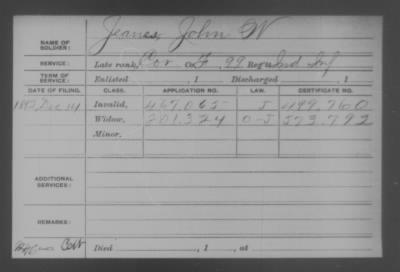 NAME OF SOLDIER: Jeanes John W
SERVICE: Late rank, Cor. Co F, 99 Reg't Ind Inf
TERM OF SERVICE: Enlisted , 1 Discharged , 1
DATE OF FILING. CLASS. APPLICATION NO. LAW. CERTIFICATE NO.
Dec 14 Invalid, 467.065 J 499.760
Widow, 201.324 O-J 573.792
Minor,
ADDITIONAL SERVICES:
REMARKS:
Died , 1 , at